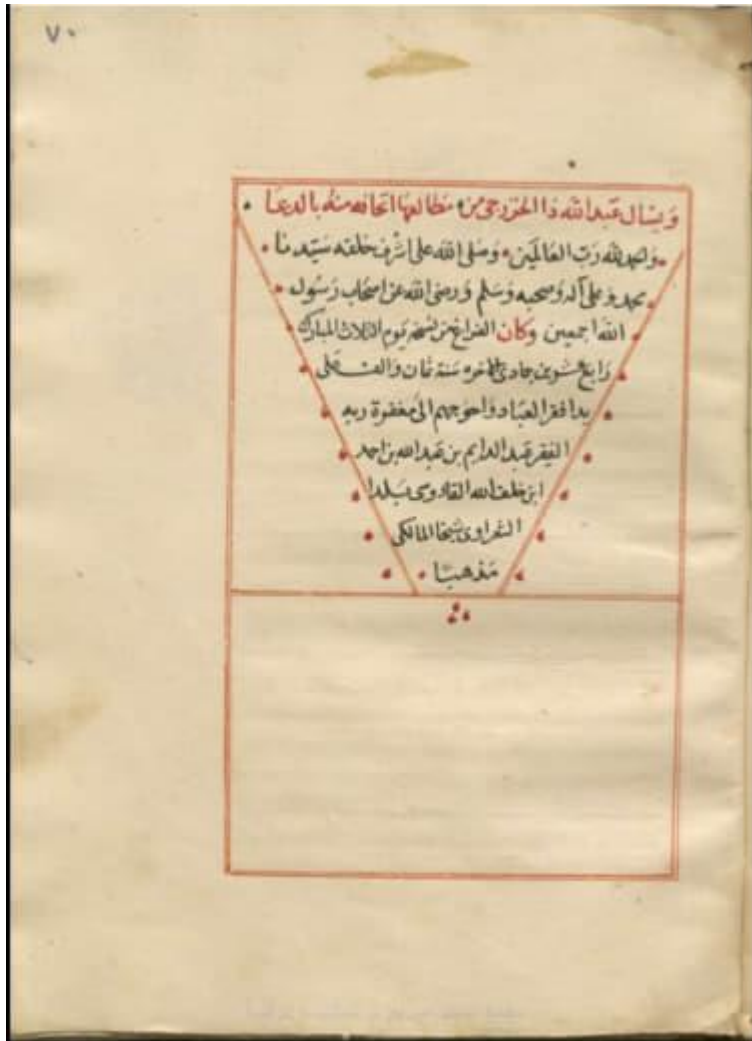 ٧٠
ويسال عبد الله ذا الخزرجي من مطالعها اتحافه منه بالدعا
والحمد لله رب العالمين وصلى الله على اشرف خلقه سيدنا
محمد وعلى آله وصحبه وسلم ورضى الله عن اصحاب رسول
الله اجمعين وكان الفراغ من نسخه يوم الثلاث المبارك
رابع عشرين جمادى الاخره سنة ثمان والف على
يد افقر العباد واحوجهم الى مغفرة ربه
الفقير عبد الدايم بن عبد الله بن احمد
ابن خلف الله القادوسى بلدا
الشعراوى شيخا المالكى
مذهبا